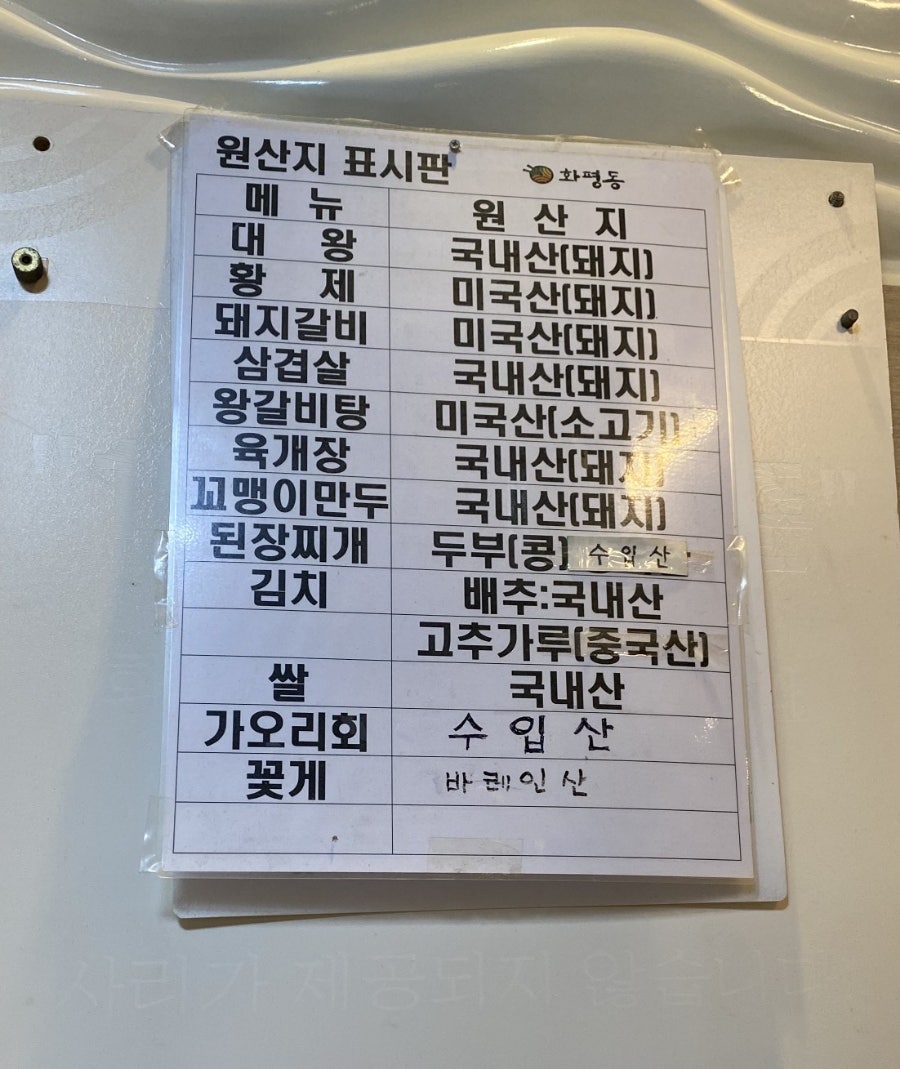 원산지 표시판 화평동
메 뉴 원 산 지
대 왕 국내산(돼지)
황 제 미국산(돼지)
돼지갈비 미국산(돼지)
삼겹살 국내산(돼지)
왕갈비탕 미국산(소고기)
육개장 국내산(돼지)
꼬맹이만두 국내산(돼지)
된장찌개 두부(콩) 수입산
김치 배추:국내산
고추가루(중국산)
쌀 국내산
가오리회 수입산
꽃게 바레인산
사리가 제공되지 않습니다